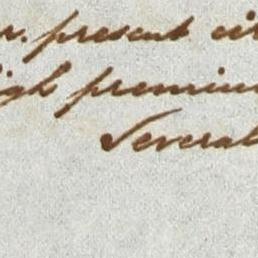 present
high premium
Several